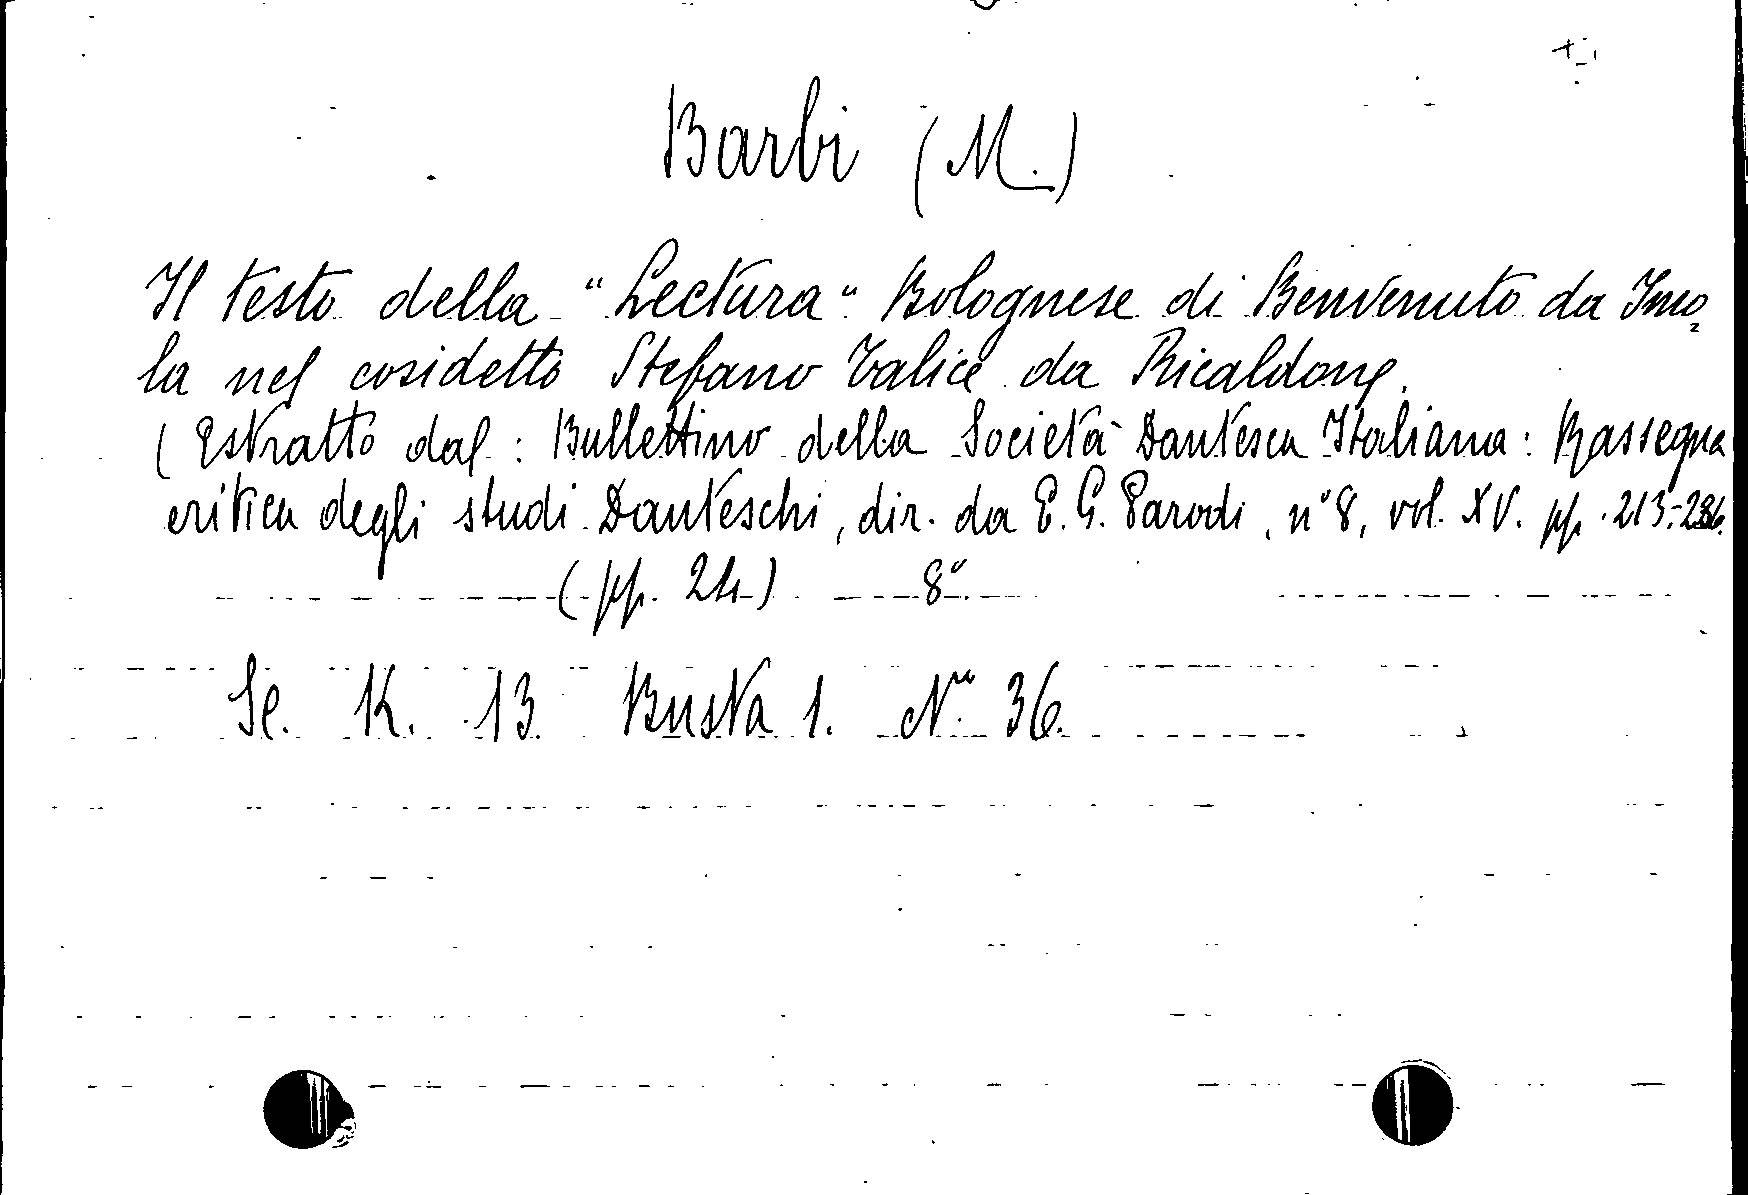 Barbi (M.)
Il testo della "Lectura" Bolognese di Benvenuto da Imo
la nel cosidetto Stefano Talice da Ricaldone.
(Estratto dal: Bullettino della Società Dantesca Italiana: Rassegna
critica degli studi Danteschi, dir. da E. G. Parodi, n° 8, vol. XV. pp. 213-236.
(pp. 24) 8°
Se. K. 13 Busta 1. N° 36.